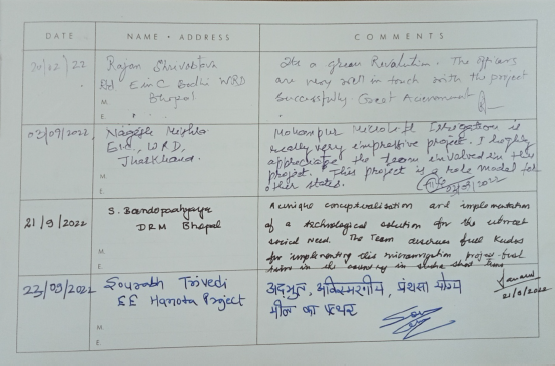 DATE NAME • ADDRESS COMMENTS
Rajan Shrivastava
Rtd EinC Bodhi WRD
Bhopal
M.
E.
Its a green Revolution. The officers
are very well in touch with the project
Successfully. Great
03/09/2022
Nagesh Mishra
EIC, WRD,
Jharkhand.
M.
E.
Mohanpura Microlift Irrigation is
really very impressive project. I highly
appreciate the team involved in this
project. This project is a role model for
other states.
21/9/2022
S. Bandopadhyaya
DRM Bhopal
M.
E.
A unique conceptualisation and implementation
of a technological solution for the utmost
social need. The Team deserves full Kudos
for implementing this microirrigation project first
time in the country in such a short time
21/9/2022
23/09/2022
Sourabh Trivedi
EE Hanota Project
M.
E.
अदभुत, अविस्मरणीय, प्रशंसा योग्य
मील का पत्थर